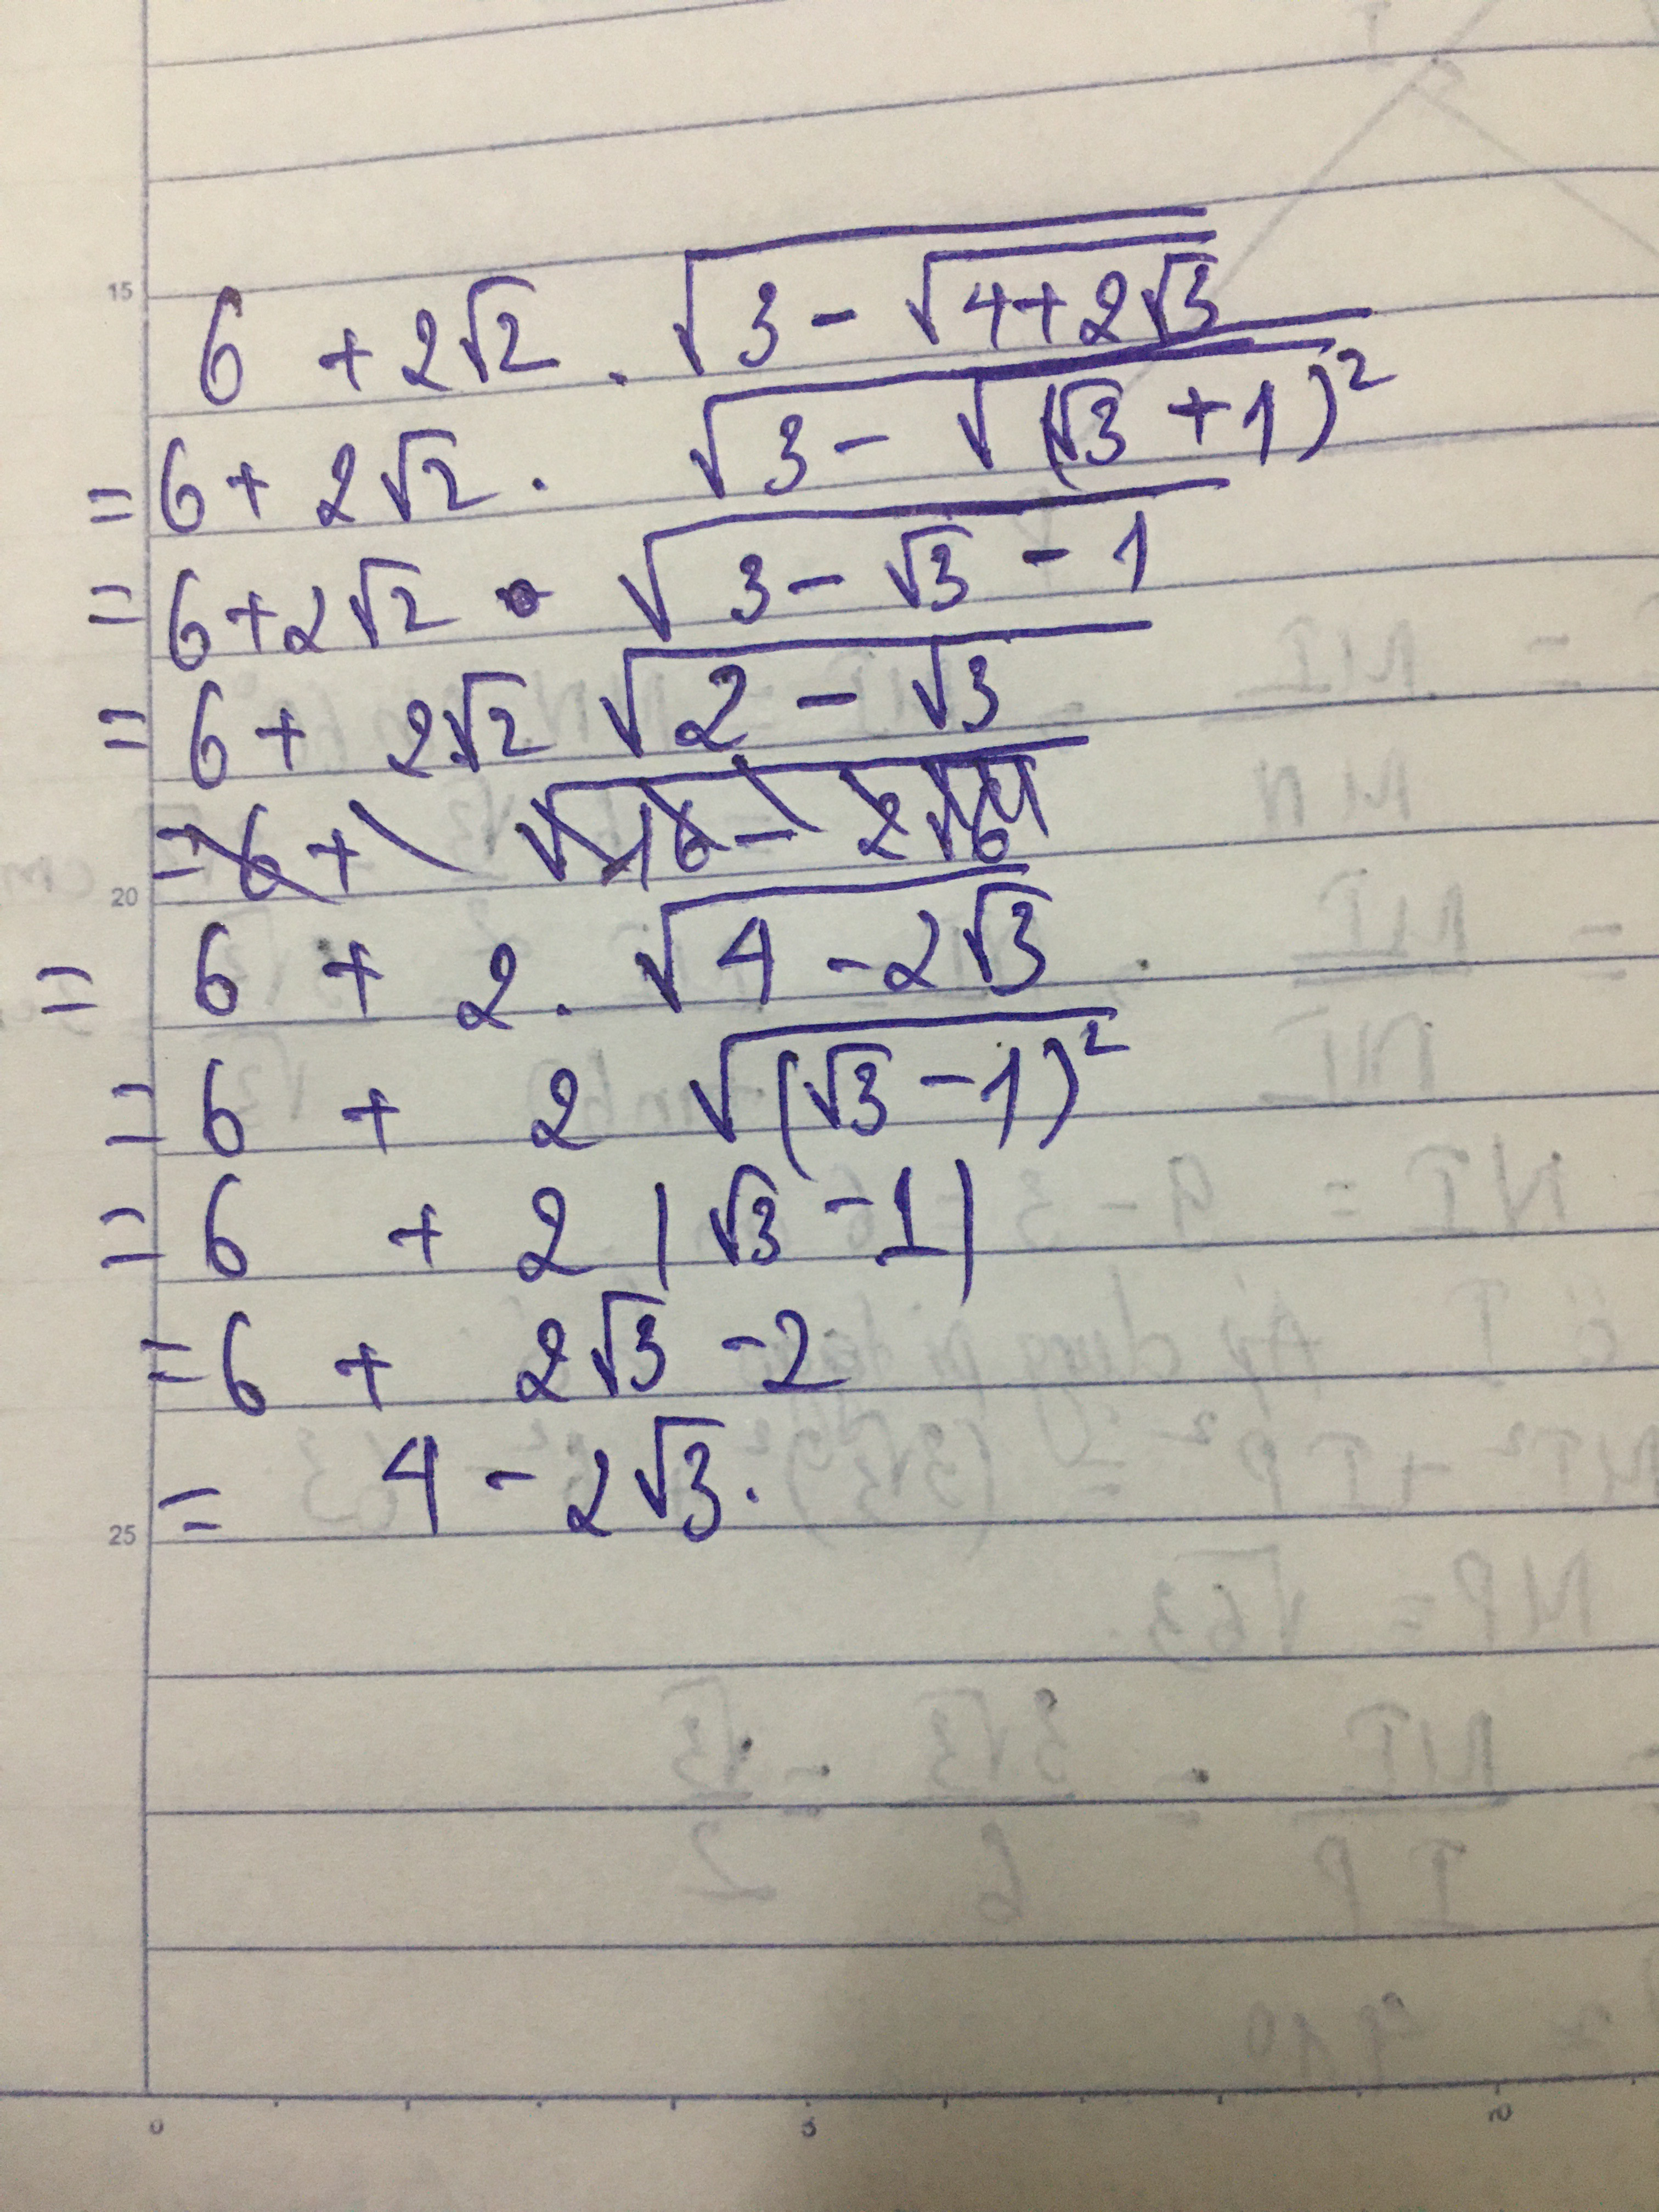 15
6 + 2√2 . √(3 - √(4+2√3))
= 6 + 2√2 . √(3 - √((√3 + 1)²))
= 6 + 2√2 . √(3 - √3 - 1)
= 6 + 2√2 √(2 - √3)
20
= 6 + 2 . √(4 - 2√3)
= 6 + 2 √((√3 - 1)²)
= 6 + 2 |√3 - 1|
= 6 + 2√3 - 2
= 4 - 2√3.
25
0 5 10